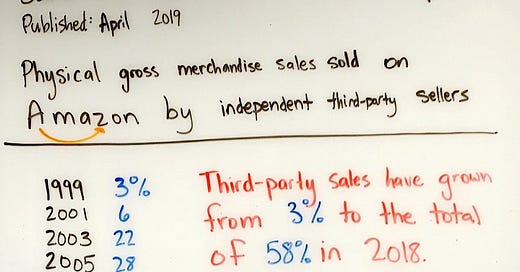 Published: April 2019
Physical gross merchandise sales sold on
Amazon by independent third-party sellers
1999 3%
2001 6
2003 22
2005 28
Third-party sales have grown
from 3% to the total
of 58% in 2018.